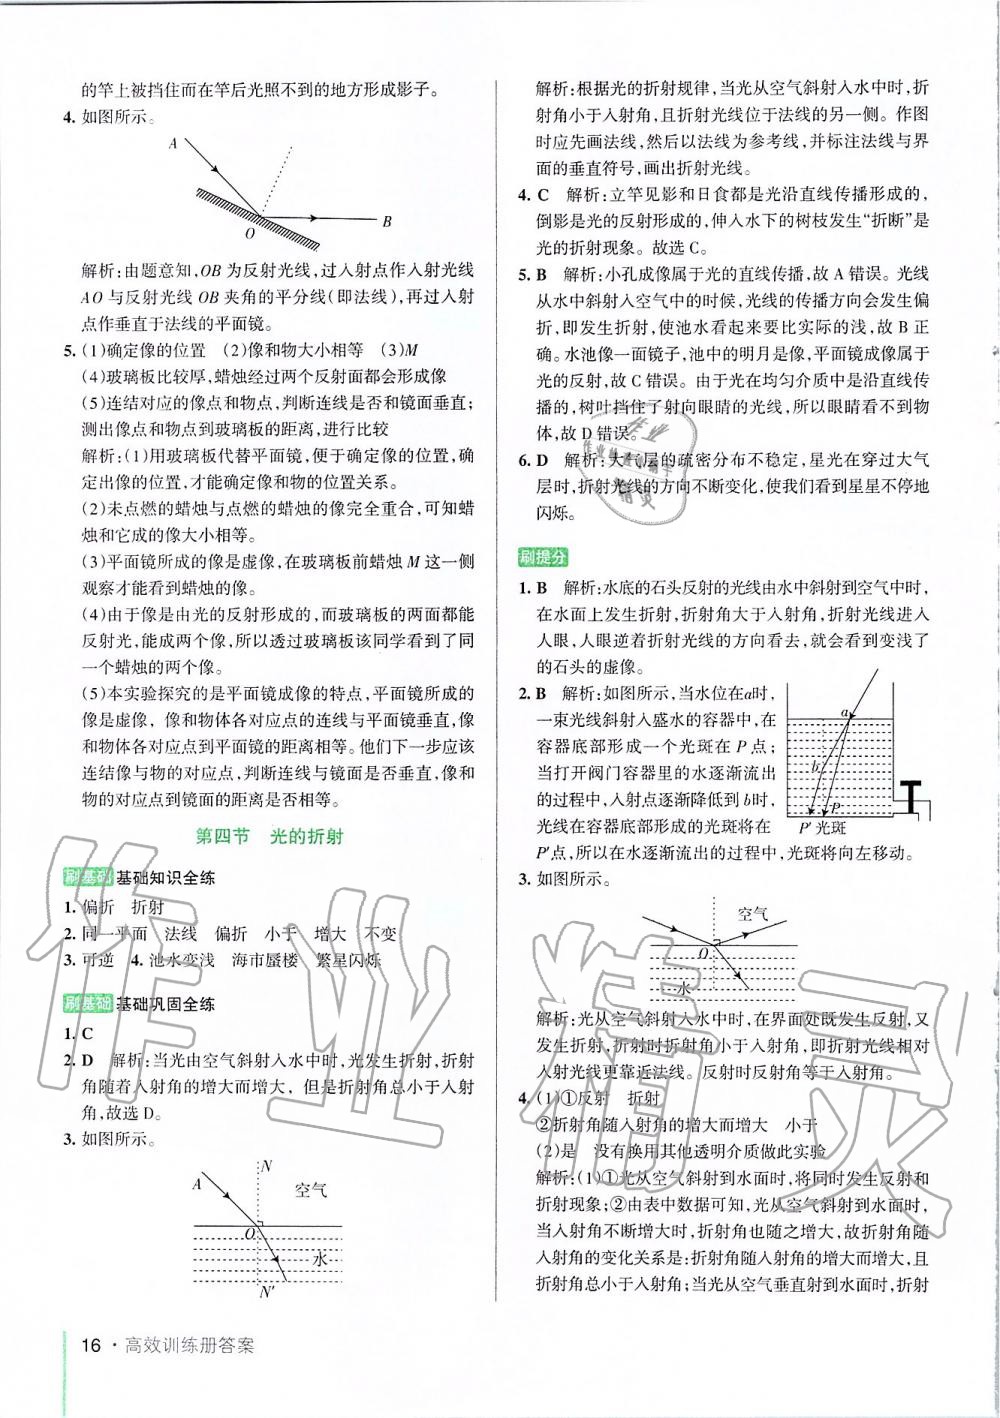 的竿上被挡住而在竿后光照不到的地方形成影子。
4. 如图所示。
A
O
B
解析:由题意知,OB为反射光线,过入射点作入射光线
AO与反射光线OB夹角的平分线(即法线),再过入射
点作垂直于法线的平面镜。
5. (1)确定像的位置 (2)像和物大小相等 (3)M
(4)玻璃板比较厚,蜡烛经过两个反射面都会形成像
(5)连结对应的像点和物点,判断连线是否和镜面垂直;
测出像点和物点到玻璃板的距离,进行比较
解析:(1)用玻璃板代替平面镜,便于确定像的位置,确
定出像的位置,才能确定像和物的位置关系。
(2)未点燃的蜡烛与点燃的蜡烛的像完全重合,可知蜡
烛和它成的像大小相等。
(3)平面镜所成的像是虚像,在玻璃板前蜡烛M这一侧
观察才能看到蜡烛的像。
(4)由于像是由光的反射形成的,而玻璃板的两面都能
反射光,能成两个像,所以透过玻璃板该同学看到了同
一个蜡烛的两个像。
(5)本实验探究的是平面镜成像的特点,平面镜所成的
像是虚像,像和物体各对应点的连线与平面镜垂直,像
和物体各对应点到平面镜的距离相等。他们下一步应该
连结像与物的对应点,判断连线与镜面是否垂直,像和
物的对应点到镜面的距离是否相等。
第四节 光的折射
刷基础 基础知识全练
1. 偏折 折射
2. 同一平面 法线 偏折 小于 增大 不变
3. 可逆 4. 池水变浅 海市蜃楼 繁星闪烁
刷基础 基础巩固全练
1. C
2. D 解析:当光由空气斜射入水中时,光发生折射,折射
角随着入射角的增大而增大,但是折射角总小于入射
角,故选D。
3. 如图所示。
N
A
空气
O
水
N′
16 · 高效训练册答案
解析:根据光的折射规律,当光从空气斜射入水中时,折
射角小于入射角,且折射光线位于法线的另一侧。作图
时应先画法线,然后以法线为参考线,并标注法线与界
面的垂直符号,画出折射光线。
4. C 解析:立竿见影和日食都是光沿直线传播形成的,
倒影是光的反射形成的,伸入水下的树枝发生“折断”是
光的折射现象。故选C。
5. B 解析:小孔成像属于光的直线传播,故A错误。光线
从水中斜射入空气中的时候,光线的传播方向会发生偏
折,即发生折射,使池水看起来要比实际的浅,故B正
确。水池像一面镜子,池中的明月是像,平面镜成像属于
光的反射,故C错误。由于光在均匀介质中是沿直线传
播的,树叶挡住了射向眼睛的光线,所以眼睛看不到物
体,故D错误。
6. D 解析:大气层的疏密分布不稳定,星光在穿过大气
层时,折射光线的方向不断变化,使我们看到星星不停地
闪烁。
刷提分
1. B 解析:水底的石头反射的光线由水中斜射到空气中时,
在水面上发生折射,折射角大于入射角,折射光线进入
人眼,人眼逆着折射光线的方向看去,就会看到变浅了
的石头的虚像。
2. B 解析:如图所示,当水位在a时,
一束光线斜射入盛水的容器中,在
容器底部形成一个光斑在P点;
当打开阀门容器里的水逐渐流出
的过程中,入射点逐渐降低到b时,
光线在容器底部形成的光斑在
P′点,所以在水逐渐流出的过程中,光斑将向左移动。
a
b
P
P′ 光斑
3. 如图所示。
空气
O
水
解析:光从空气斜射入水中时,在界面处既发生反射,又
发生折射,折射时折射角小于入射角,即折射光线相对
入射光线更靠近法线。反射时反射角等于入射角。
4. (1)①反射 折射
②折射角随入射角的增大而增大 小于
(2)是 没有换用其他透明介质做此实验
解析:(1)①当光从空气斜射到水面时,将同时发生反射和
折射现象;②由表中数据可知,光从空气斜射到水面时,
当入射角不断增大时,折射角也随之增大,故折射角随
入射角的变化关系是:折射角随入射角的增大而增大,且
折射角总小于入射角;当光从空气垂直射到水面时,折射
作业精灵